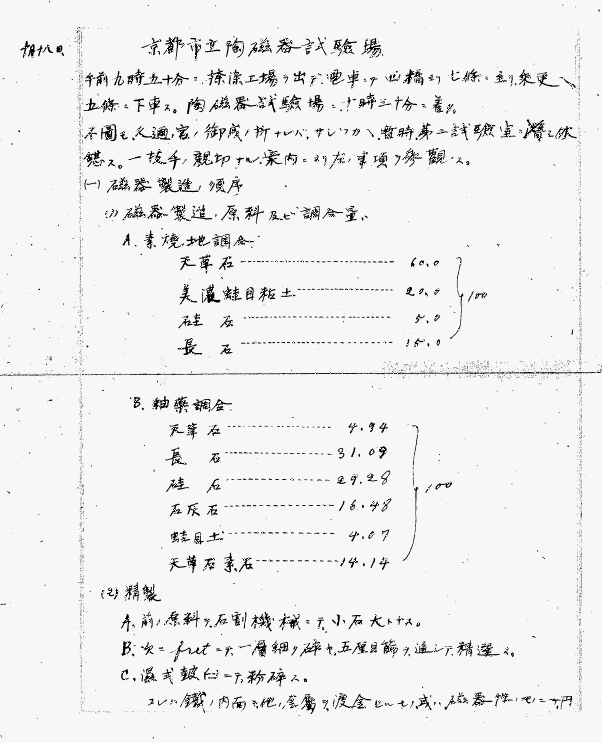 十月十八日、
京都市立陶磁器試驗場
午前九時五十分ニ 工場ヲ出デ 電車ニテ 四 橋ヨリ七條ニ至リ乘更ヘ
五條ニ下車ス。陶磁器試驗場ニ十時三十分ニ着ク。
不圖モ 御成ノ折ナレバ、 暫時第二試驗室ニ 休
憩ス。一技手ノ親切ナル案内ニヨリ左ノ事項ヲ參觀ス。
(一) 磁器製造ノ順序
(1) 磁器製造ノ原料及ビ調合量、
A. 素燒地調合
天草石 60.0
美濃蛙目粘土 20.0
硅石 5.0
長石 15.0
100
B. 釉藥調合
天草石 4.94
長石 31.09
硅石 29.28
石灰石 16.48
蛙目土 4.07
天草石素石 14.14
100
(2) 精製
A. 前ノ原料ヲ石割機械ニテ小石大トナス。
B. 次ニ fret ニテ一層細ク碎キ五厘目篩ヲ通シテ精選ス。
C. 濕式 ニテ粉碎ス。
コレハ鐵ノ内面ニ他ノ金屬ヲ渡金セルモノ或ハ磁器性ノモノニテ円